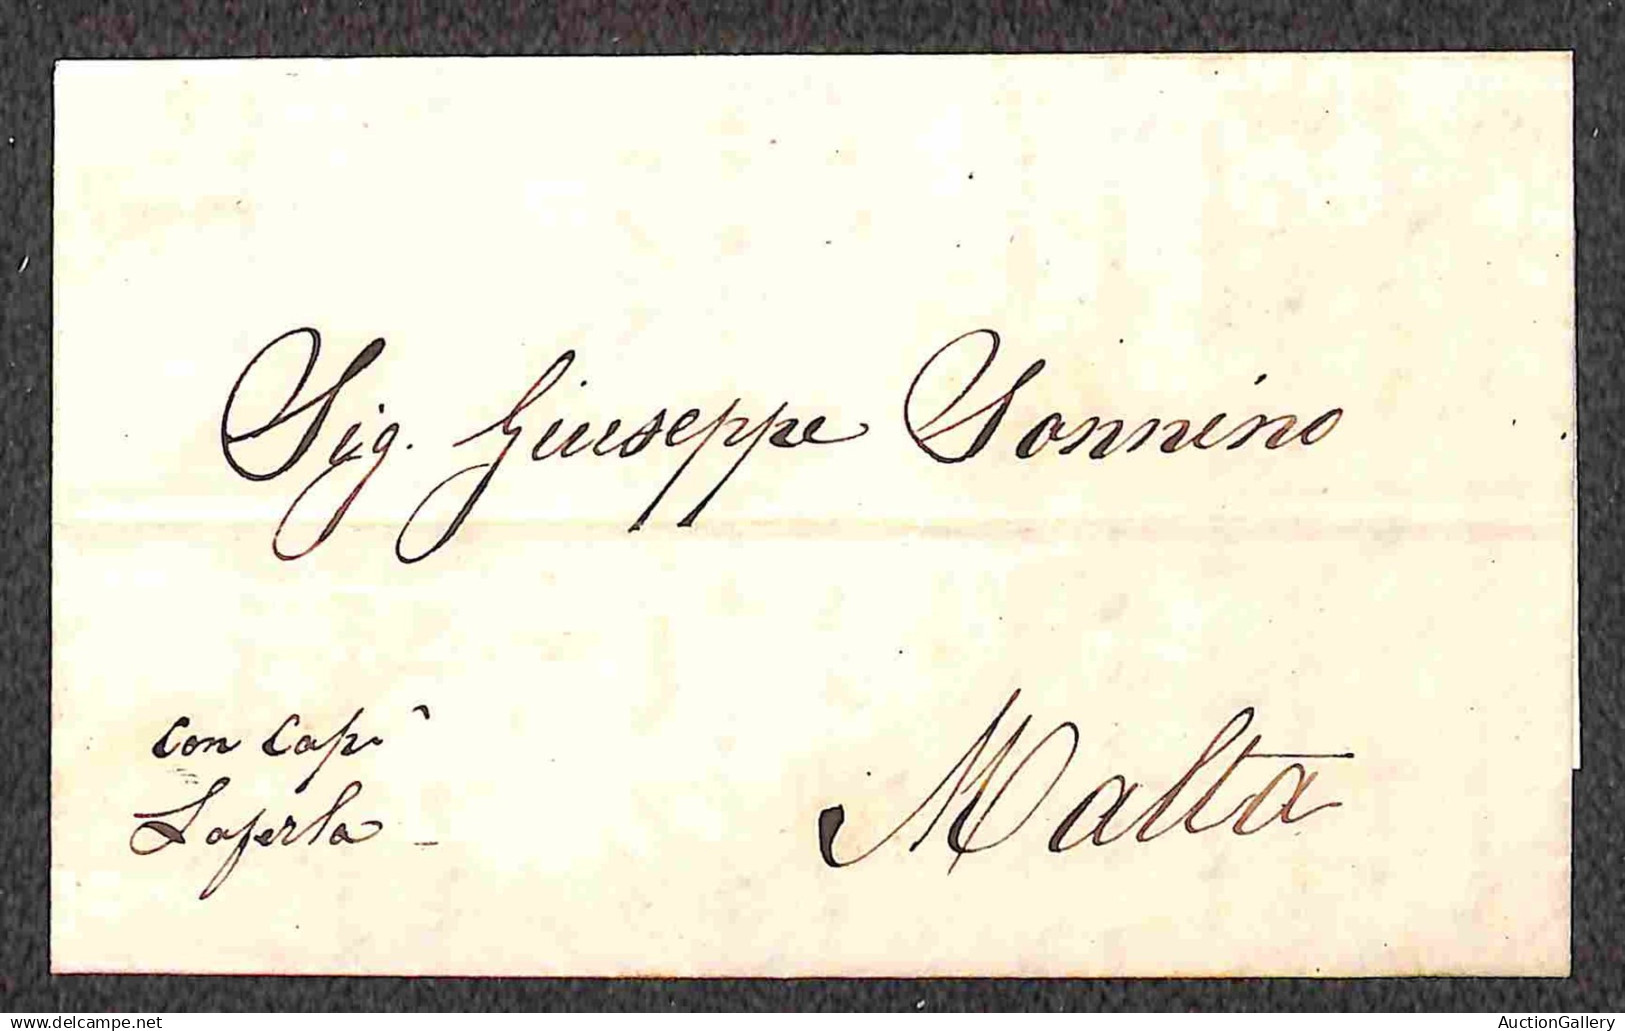 Sig. Giuseppe Sonnino
con Capⁿ
Laferla
Malta
www.delcampe.net
AuctionGallery